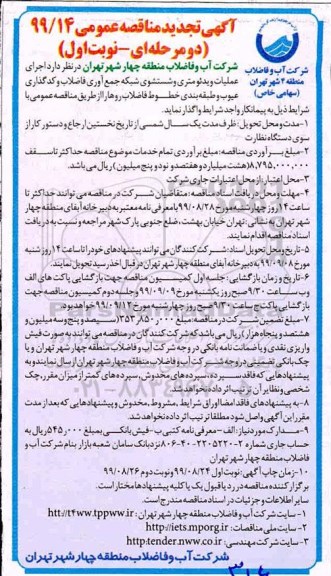 آگهی تجدید مناقصه عمومی ۹۹/۱۴
(دو مرحله‌ای - نوبت اول)
شرکت آب و فاضلاب
منطقه ۴ شهر تهران
(سهامی خاص)
شرکت آب وفاضلاب منطقه چهار شهر تهران در نظر دارد اجرای
عملیات ویدئومتری و شستشوی شبکه جمع آوری فاضلاب و کدگذاری
عیوب وطبقه بندی خطوط فاضلاب روها را از طریق مناقصه عمومی با
شرایط ذیل به پیمانکار واجد شرایط واگذار نماید.
۱-مدت ومحل تحویل: ظرف مدت یک سال شمسی از تاریخ نخستین ارجاع و دستور کار از
سوی دستگاه نظارت
۲-مبلغ برآوردی مناقصه: مبلغ برآوردی تمام خدمات موضوع مناقصه حداکثر تا سقف
۸٫۷۹۵٫۰۰۰٫۰۰۰ (هشت میلیارد و هفتصد و نود و پنج میلیون) ریال می باشد.
۳-محل اعتبار: از محل اعتبارات جاری شرکت
۴- مهلت ومحل دریافت اسناد مناقصه: متقاضیان شرکت در مناقصه می توانند حداکثر تا
ساعت ۱۴ روز چهارشنبه مورخ ۹۹/۰۸/۲۸ با معرفی نامه معتبر به دبیرخانه آبفای منطقه چهار
شهر تهران به نشانی: تهران خیابان بهشت، ضلع جنوبی پارک شهر مراجعه و نسبت به دریافت
اسناد مناقصه اقدام نمایند.
۵-تاریخ ومحل تحویل اسناد: شرکت کنندگان می توانند پیشنهادهای خود را تا ساعت ۱۴ روز شنبه
مورخ ۹۹/۰۹/۰۸ به دبیرخانه آبفای منطقه چهار شهر تهران در قبال اخذ رسید تحویل نمایند.
۶-تاریخ و زمان بازگشایی: جلسه اول کمیسیون مناقصه جهت بازگشایی پاکت های الف
و ب ساعت ۹/۳۰ صبح روز یکشنبه مورخ ۹۹/۰۹/۰۹ و جلسه دوم کمیسیون مناقصه جهت
بازگشایی پاکت ج ساعت ۹/۳۰ صبح روز چهارشنبه مورخ ۹۹/۰۹/۱۲ خواهد بود.
۷-مبلغ تضمین شرکت در مناقصه: ۳۵۳٫۸۵۰٫۰۰۰ (سیصد و پنجاه و سه میلیون و
هشتصد و پنجاه هزار) ریال می باشد که شرکت کنندگان در مناقصه می توانند به صورت فیش
واریزی نقدی و یا ضمانت نامه بانکی در وجه شرکت آب و فاضلاب منطقه چهار شهر تهران و یا
چک بانکی تضمینی در وجه شرکت آب و فاضلاب منطقه چهار شهر تهران ارسال نمایند و به
پیشنهادهایی که فاقد سپرده، سپرده های مخدوش، سپرده های کمتر از میزان مقرر، چک
شخصی و نظایر آن ترتیب اثر داده نخواهد شد.
۸-به پیشنهادهای فاقد امضا اوراق شرایط، مشروط، مخدوش و پیشنهادهایی که بعد از مدت
مقرر این آگهی واصل شود مطلقا ترتیب اثر داده نخواهد شد.
۹-مدارک مورد نیاز: الف-معرفی نامه کتبی ب-فیش بانکی به مبلغ ۵۴۵٫۰۰۰ ریال به
حساب جاری شماره ۲-۲۲۰۵۲۲۰-۴۰-۸۰۶ نزد بانک سامان شعبه بازار بنام شرکت آب و
فاضلاب منطقه چهار شهر تهران
۱۰-زمان چاپ آگهی: نوبت اول ۹۹/۰۸/۲۴ و نوبت دوم ۹۹/۰۸/۲۶
برگزار کننده مناقصه در رد یا قبول یک یا کلیه پیشنهادها مختار است.
سایر اطلاعات و جزئیات در اسناد مناقصه مندرج است.
۱-سایت شرکت آب و فاضلاب منطقه چهار شهر تهران: http://t4ww.tppww.ir
۲-سایت ملی مناقصات: http://iets.mporg.ir
۳-سایت شرکت مهندسی: http:tender.nww.co.ir
شرکت آب و فاضلاب منطقه چهار شهر تهران